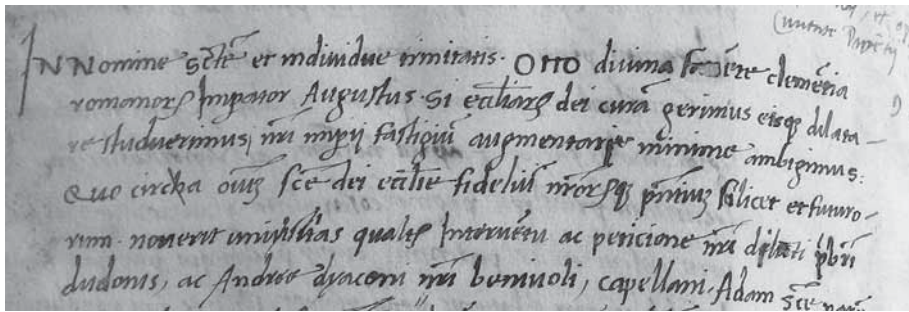 IN Nomine scte et individue trinitatis. OTTO divina clemētia
romanorȝ Imperator Augustus. Si eccliarȝ dei curā gerimus eisq dilata-
re studuerimus, nri imperij fastigiū augmentari minime ambigimus:
Quo circha oiuȝ scē dei ecclie fidelium nrorȝq pntiuȝ scilicet et futuro-
rum. noverit univsitas qualr Interventu ac peticione nri dilecti pbri
dudonis, ac Andree dyaconi nri benivoli, capellani, Adam scē